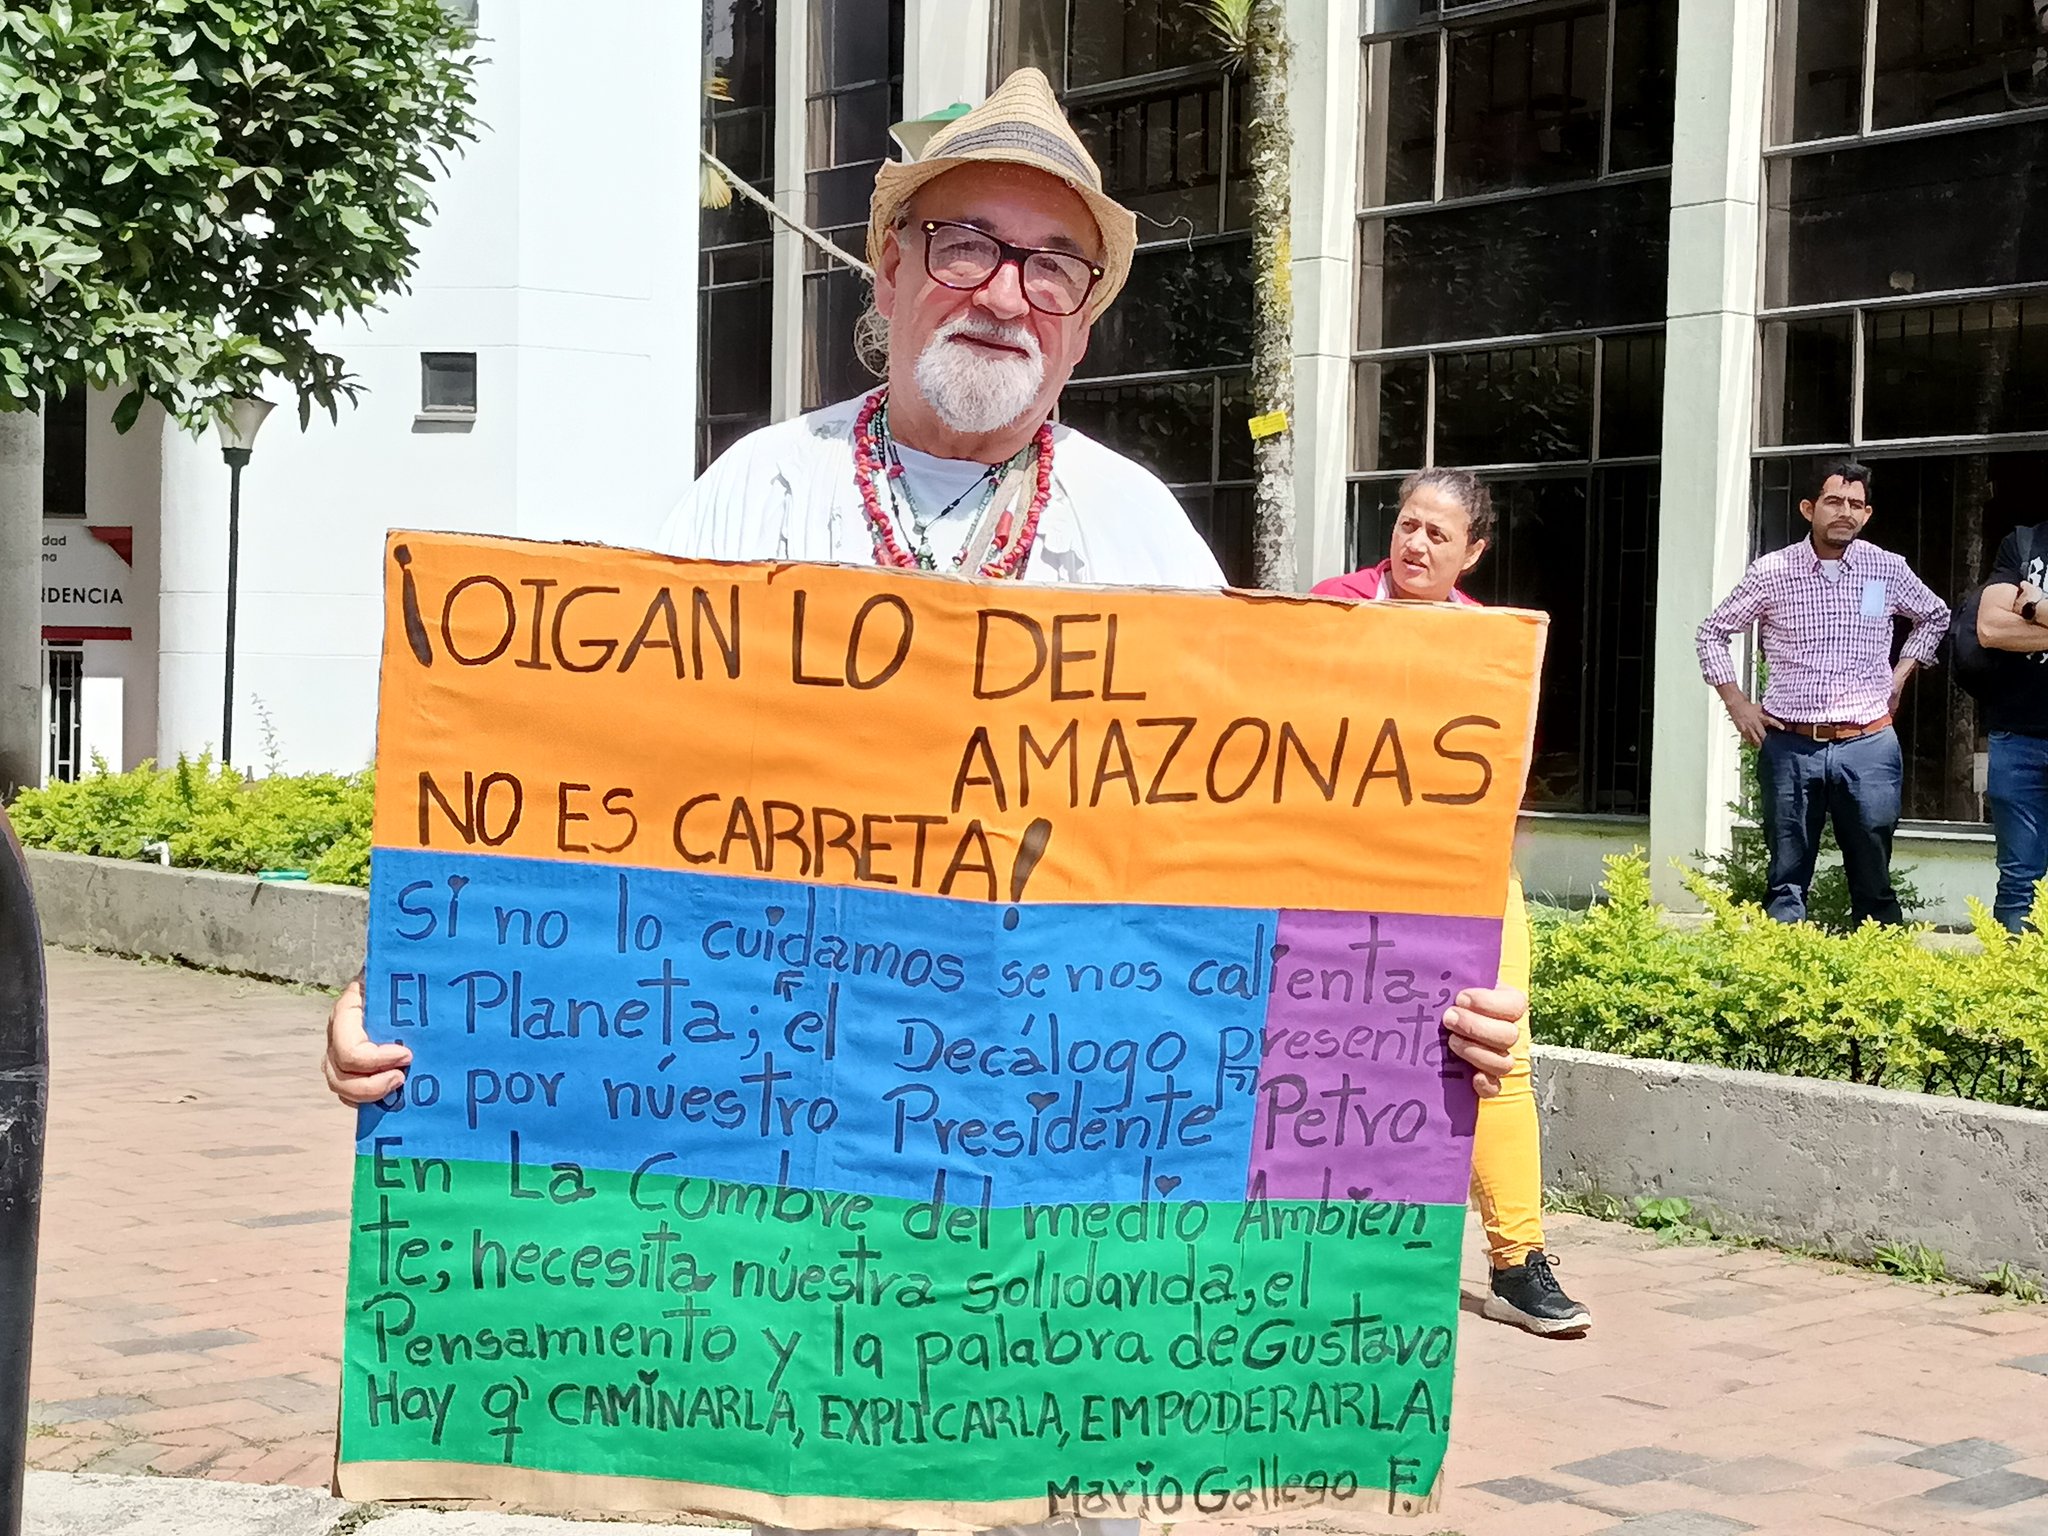 ¡OIGAN LO DEL
AMAZONAS
NO ES CARRETA!
Si no lo cuidamos se nos calienta;
El Planeta; el Decálogo presenta
do por núestro Presidente Petro
En La Cumbre del medio Ambien
te; necesita núestra solidarida, el
Pensamiento y la palabra de Gustavo
Hay q' CAMINARLA, EXPLICARLA, EMPODERARLA.
Mario Gallego F.
dad
na
DENCIA